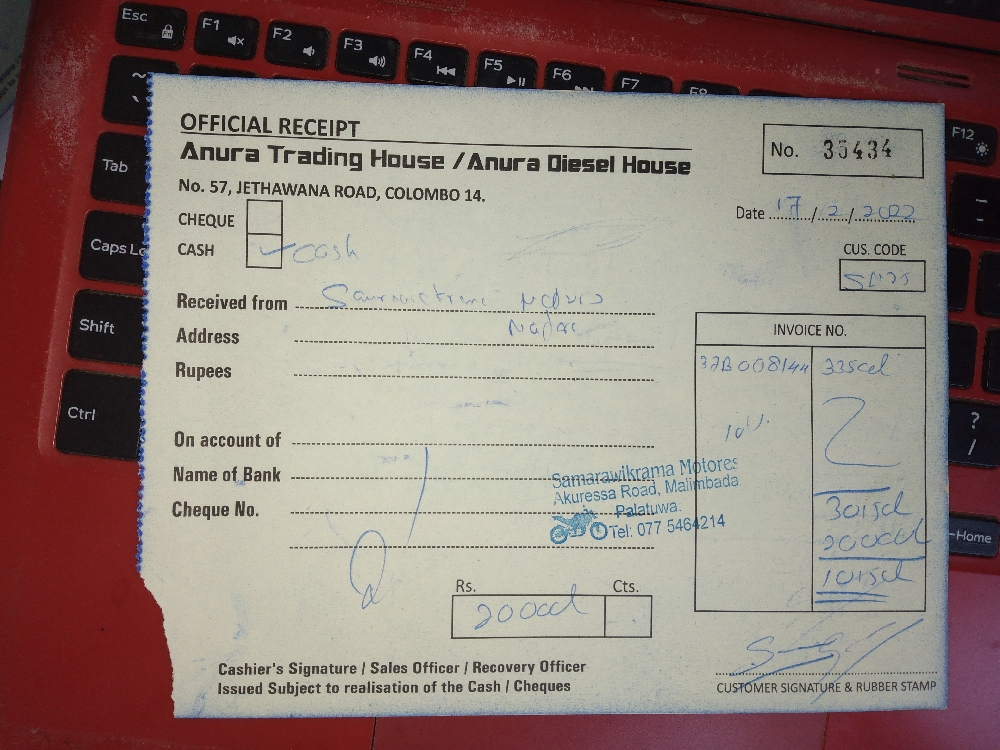 Esc F1 F2 F3 F4 F5 F6 F7 F8 F12
Tab
Caps Lo
Shift
Ctrl
? /
Home
OFFICIAL RECEIPT
Anura Trading House / Anura Diesel House
No. 35434
No. 57, JETHAWANA ROAD, COLOMBO 14.
Date 17/2/2022
CHEQUE
CASH cash
CUS. CODE
Received from
Address
Rupees
INVOICE NO.
37B008144
10%
On account of
Name of Bank
Cheque No.
Samarawikrama Motores
Akuressa Road, Malimbada
Palatuwa.
Tel: 077 5464214
Rs. Cts.
Cashier's Signature / Sales Officer / Recovery Officer
Issued Subject to realisation of the Cash / Cheques
CUSTOMER SIGNATURE & RUBBER STAMP